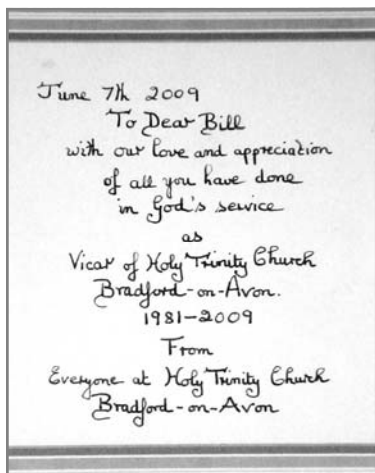 June 7th 2009
To Dear Bill
with our love and appreciation
of all you have done
in God's service
as
Vicar of Holy Trinity Church
Bradford-on-Avon.
1981-2009
From
Everyone at Holy Trinity Church
Bradford-on-Avon